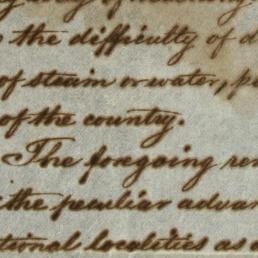 the difficulty of
of steam or water,
of the country.
The foregoing
the peculiar
localities as